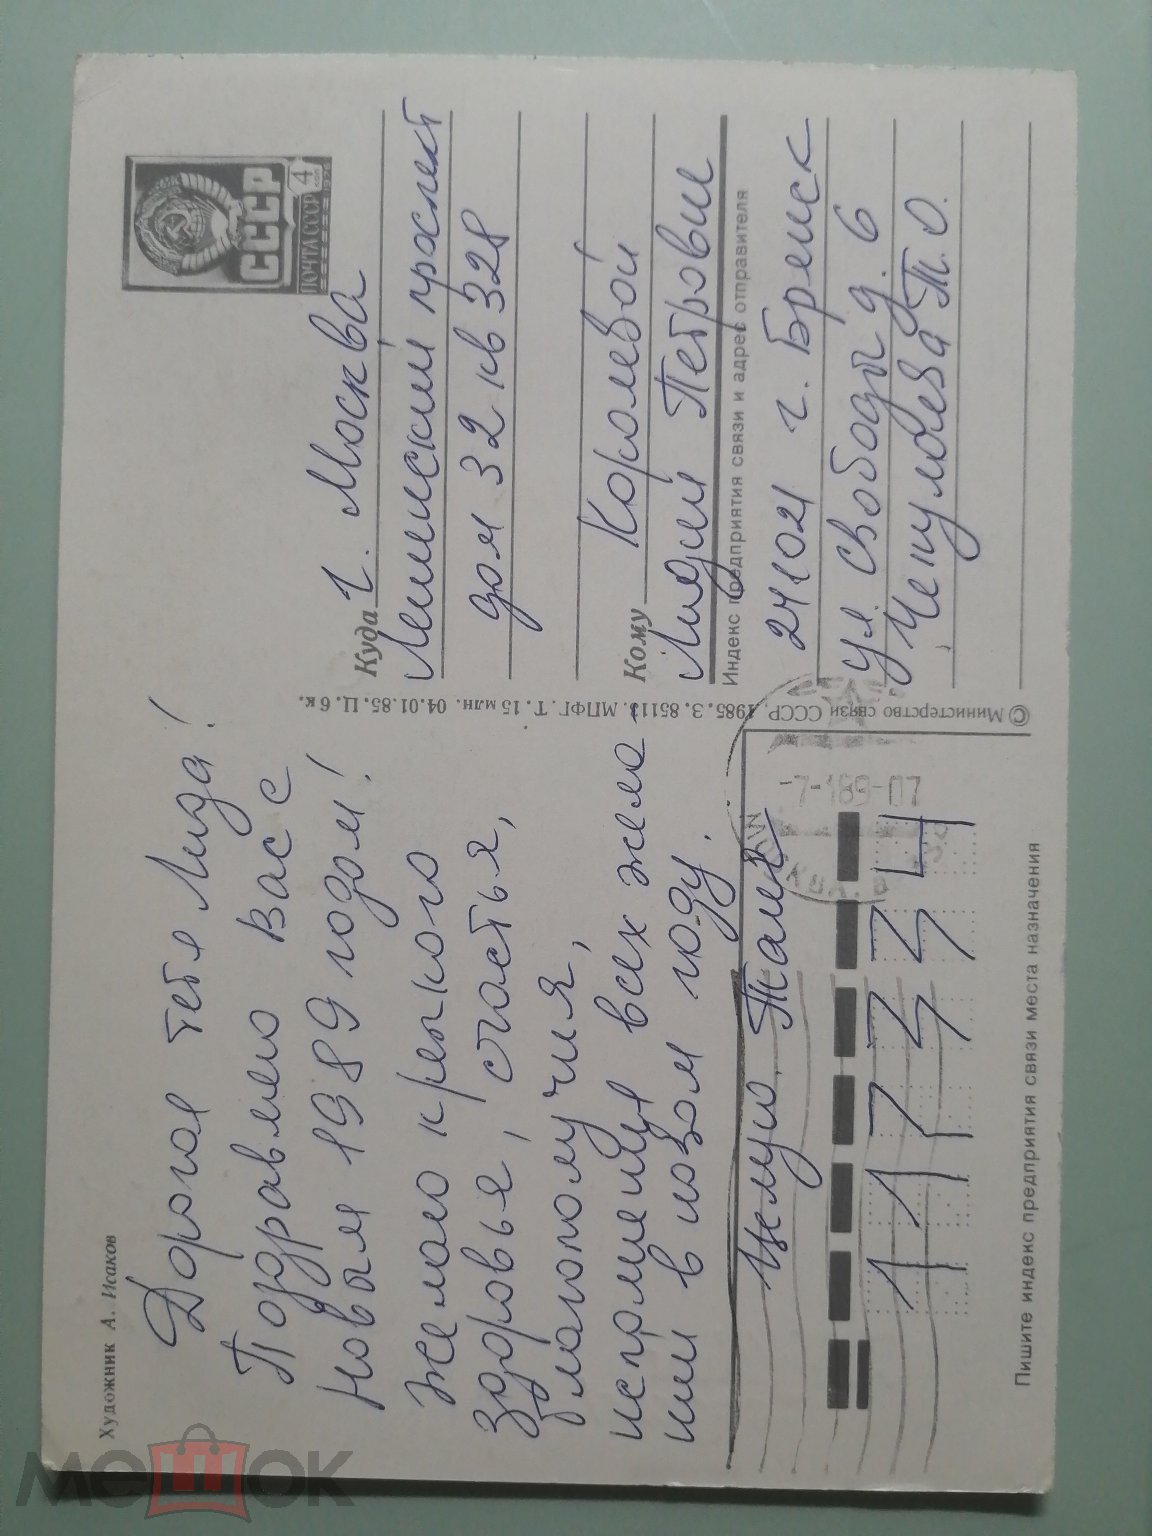 Художник А. Исаков
Дорогая тетя Лида!
Поздравляю вас с
Новым 1989 годом!
Желаю крепкого
здоровья, счастья,
благополучия,
исполнения всех жела
ний в новом году.
Целую. Таня
ПОЧТА СССР
СССР
4
КОП
Куда г. Москва
Ленинский проспект
дом 32 кв 328
Кому Королевой
Лидии Петровне
Индекс предприятия связи и адрес отправителя
241021 г. Брянск
ул. Свободы д. 6
Чепулюева Т.О.
© Министерство связи СССР. 1985. З. 85113. МПФГ. Т. 15 млн. 04.01.85. Ц. 6 к.
МОСКВА
-7-189-07
117334
Пишите индекс предприятия связи места назначения
МЕШОК